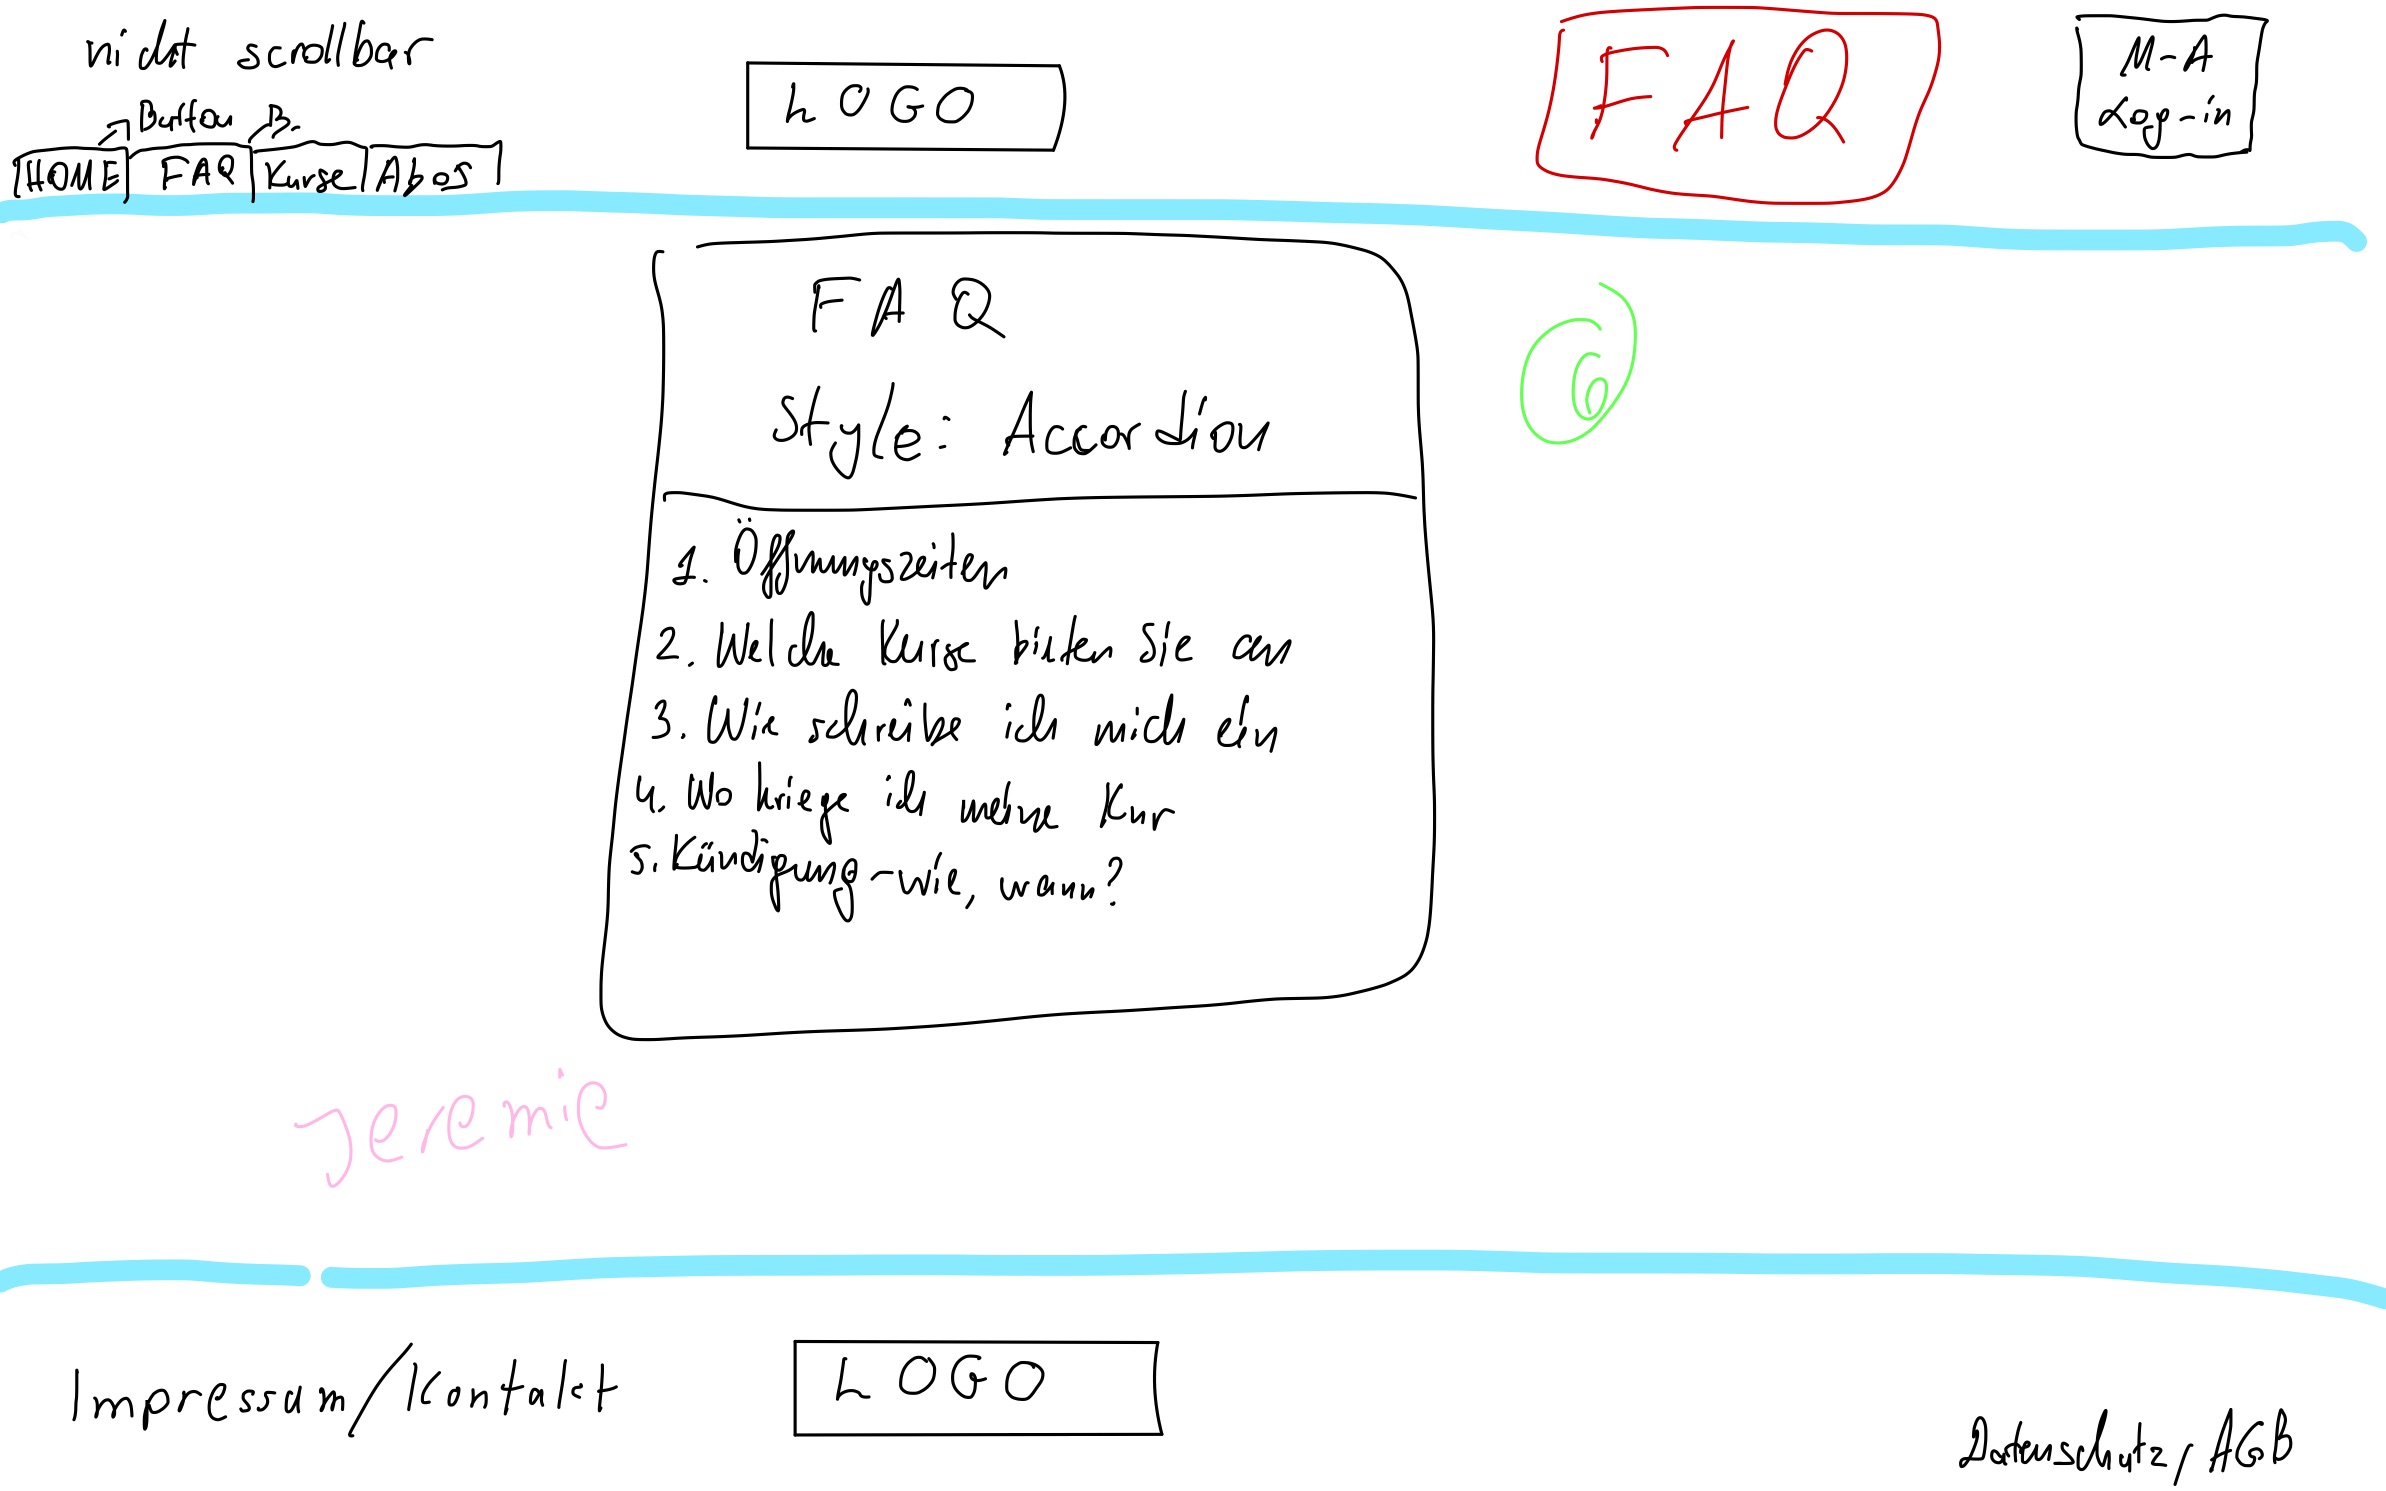 nicht scrollbar
Button 2.
HOME FAQ Kurse Abos
LOGO
FAQ
M-A
Log-in
FAQ
Style: Accordion
6
1. Öffnungszeiten
2. Welche Kurse bieten Sie an
3. Wie schreibe ich mich ein
4. Wo kriege ich meine Kur
5. Kündigung - wie, wann?
Jeremie
Impressum/Kontakt
LOGO
Datenschutz, AGB